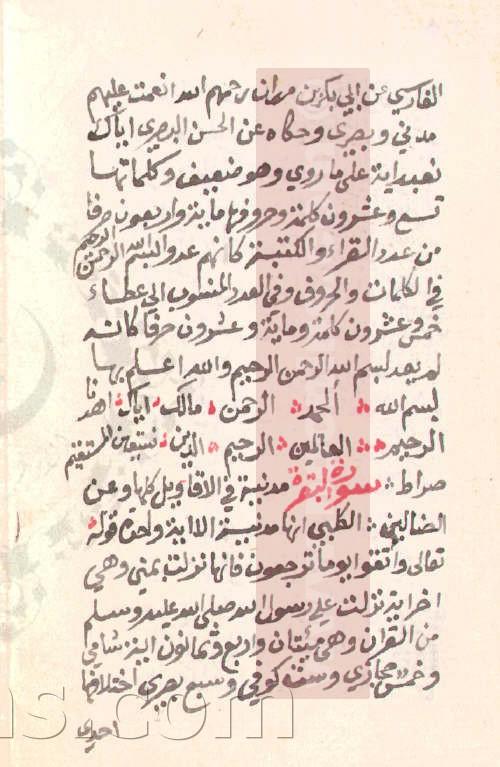 الفارسي عن ابي بكر بن مهران رحمهم الله انعمت عليهم
مدني وبصري وحكاه عن الحسن البصري اياك
نعبد اية على ما روي وهو ضعيف وكلماتها
تسع وعشرون كلمة وحروفها ماية واربعون حرفا
من عدد القراء والكتبة كانهم عدوا بسم الله الرحمن الرحيم
في الكلمات والحروف وفي العدد المنسوب الي عطاء
خمس وعشرون كلمة وماية وعشرون حرفا كانه
لم يعد بسم الله الرحمن الرحيم والله اعلم بها
بسم الله الحمد الرحمن مالك اياك اهدنا
الرحيم العالمين الرحيم الدين نستعين المستقيم
صراط سورة البقرة مدنية في الاقاويل كلها وعن
الضالين الكلبي انها مدنية الا اية واحدة قوله
تعالى واتقوا يوما ترجعون فانها نزلت بمني وهي
اخر اية نزلت علي رسول الله صلى الله عليه وسلم
من القران وهي مئيتان واربع وثمانون اية شامي
وخمس حجازي وستة كوفي وسبع بصري اختلافها
احدي